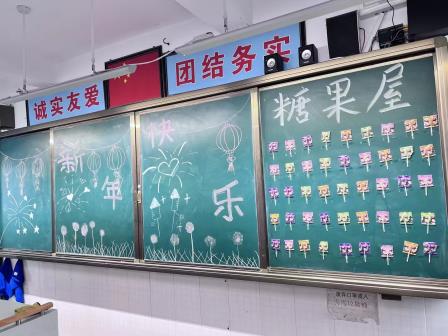 诚实友爱
团结务实
新年快乐
糖果屋